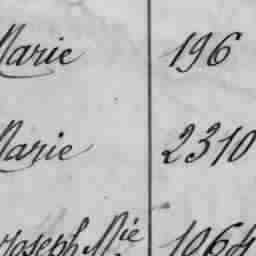 Marie 196
Marie 2310
Joseph Mie 1064